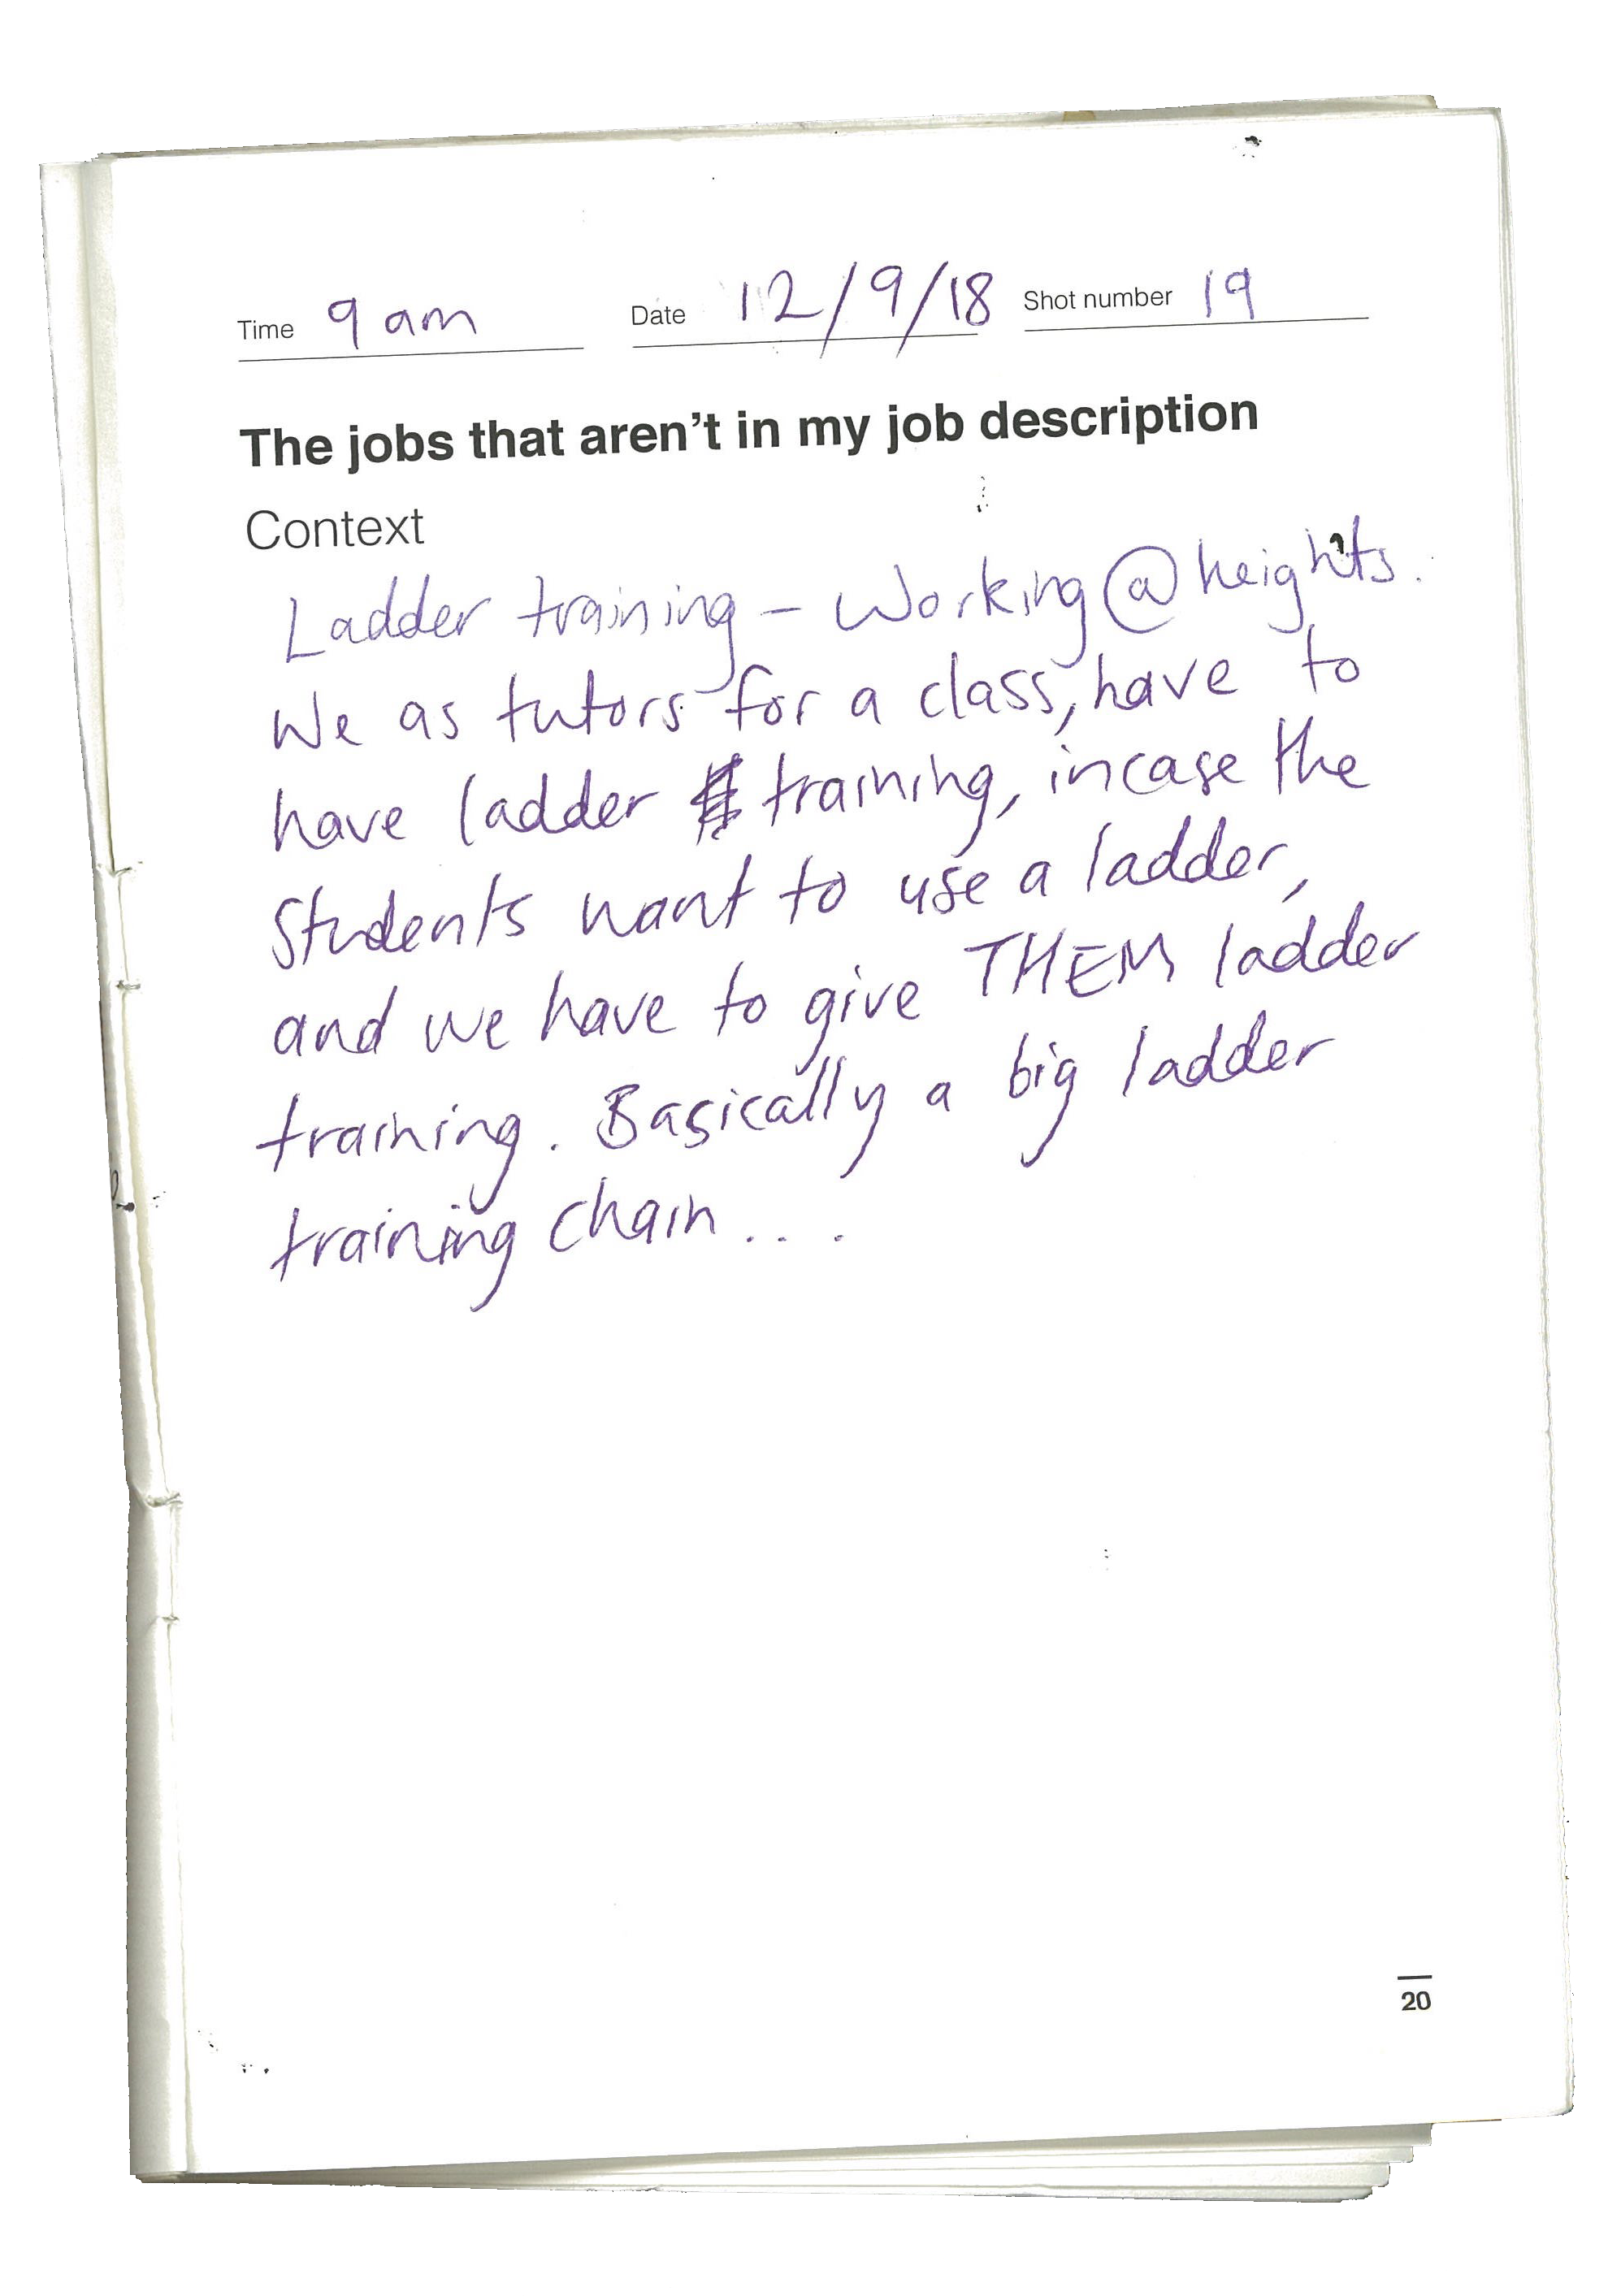 Time 9 am Date 12/9/18 Shot number 19
The jobs that aren't in my job description
Context
Ladder training – Working @ heights.
We as tutors for a class, have to
have ladder training, incase the
students want to use a ladder,
and we have to give THEM ladder
training. Basically a big ladder
training chain . . .
20